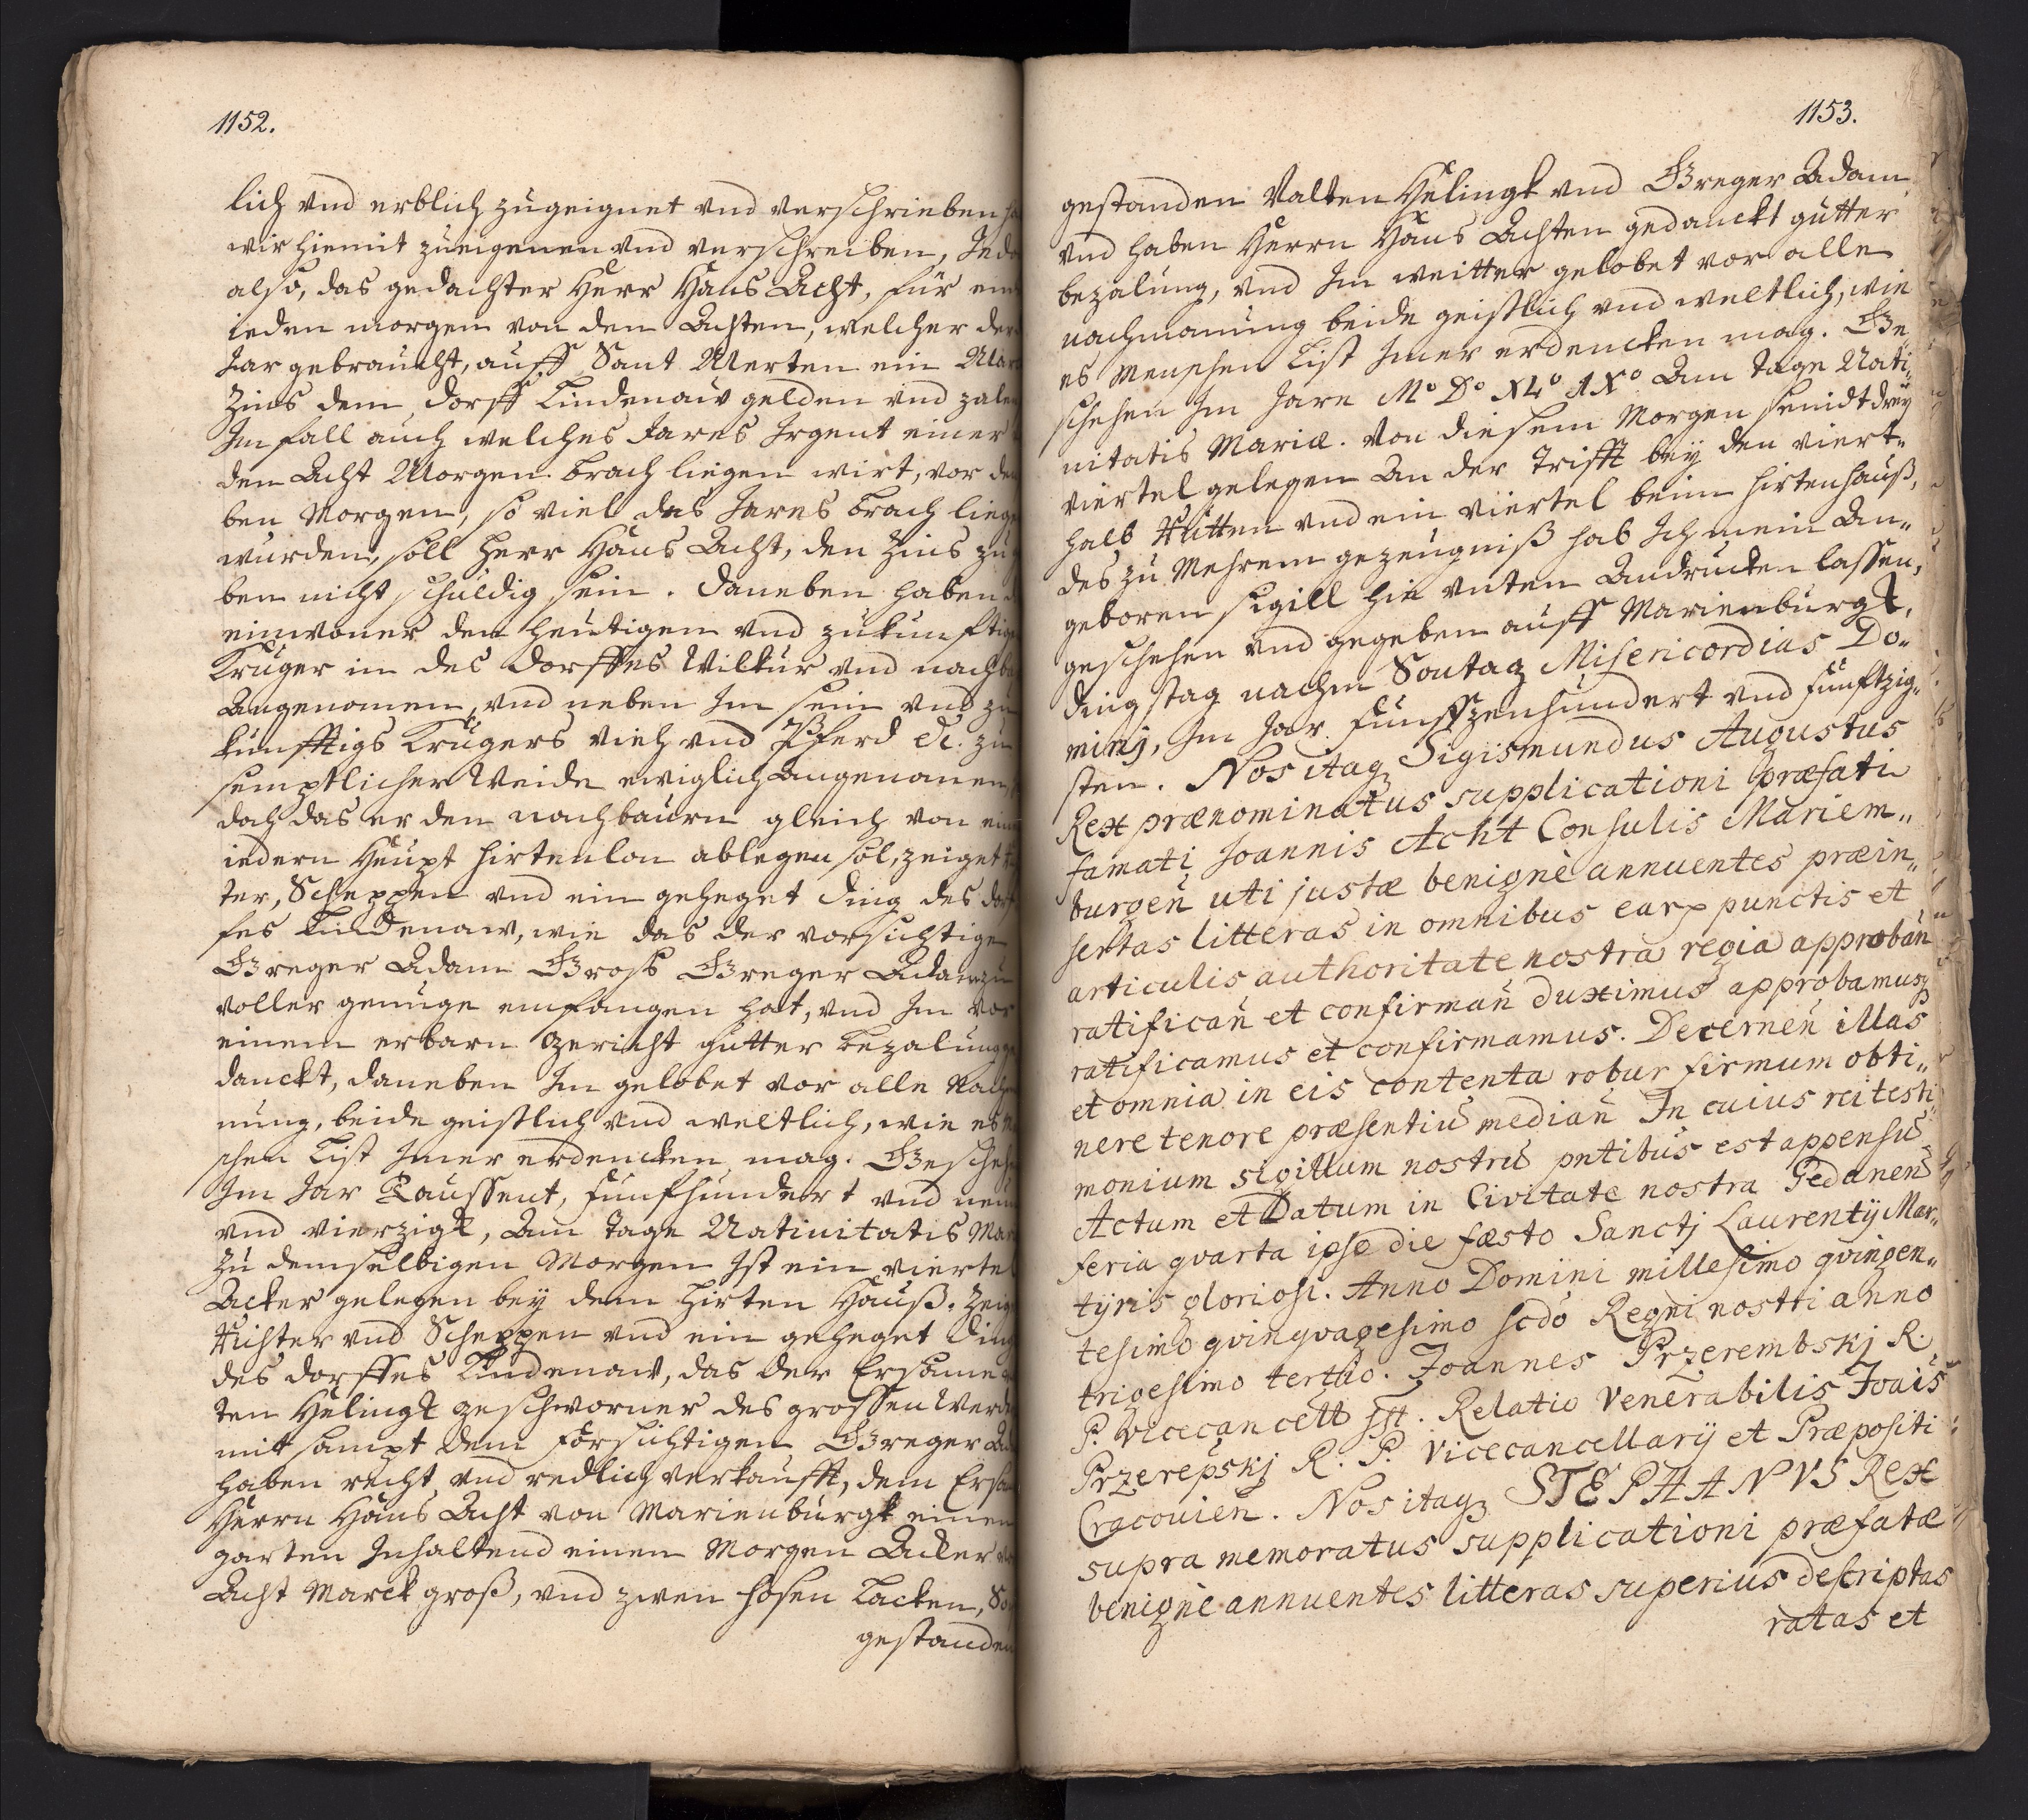 1152.
lich vnd erblich zugeignet vnd verschrieben
wir hiemit zueigenen vnd verschreiben, Jedo
also, das gedachter Herr Hans Acht, für ein
ieden morgen von den Achten, welcher der
Jar gebraucht, auff Sant Merten ein Mar
Zins dem dorff Lindenaw gelden vnd zale
Im fall auch welches Jares Irgent einer
den Acht Morgen brach liegen wirt, vor de
ben Morgen, so viel das Jares brach lieg
wurden, soll Herr Hans Acht, den Zins zu
ben nicht schuldig sein. Daneben haben
einwoner den heutigen vnd zukunftig
Krüger in des dorffes Wilkür vnd nachb
Angenomen, vnd neben Im sein vnd zu
kunfftigs Krügers vieh vnd Pferd etc. zu
semptlicher Weide ewiglich Angenomen,
doch das er den nachbaurn gleich von ein
iedern Heupt hirtenlon ablegen sol, zeiget
ter, Scheppen vnd ein geheget ding des dorf
fes Lindenaw, wie das der vorsichtige
Greger Adam Gross Greger Adam zu
voller genuge emfangen hat, vnd Im vor
einem erbarn gericht gutter bezalung ge
danckt, daneben Im gelobet vor alle Nach
nung, beide geistlich vnd weltlich, wie es
schen List Jmer erdencken mag. Gescheh
Im Jar Taussent, funfhundert vnd neun
vnd vierzigk, Am tage Natiuitatis Mar
Zu demselbigen Morgen Ist ein viertel
Acker gelegen bey dem Hirten Hauß. Zeig
Richter vnd Scheppen vnd ein geheget ding
des dorffes Lindenaw, das der Ersame
ten Helingk geschworner des grossen Werde
mit sampt dem forsichtigen Greger A
haben recht vnd redlich verkaufft, dem Ersa
Herrn Hans Acht von Marienburgk einen
garten Inhaltend einen Morgen Acker
Acht Marck groß, vnd zwen hosen Lacken, So
gestanden
1153.
gestanden Valten Helingk vnd Greger Adam,
vnd haben Herrn Hans Achten gedanckt gutter
bezalung, vnd Im weitter gelobet vor alle
nachmanung beide geistlich vnd weltlich, wie
es Menschen List Jmer erdencken mag. Ge„
schehen Im Jare Mo Do XLo IXo Am tage Nati„
uitatis Mariæ. Von diesem Morgen seindt drey
viertel gelegen An der Trifft bey den viert„
halb Rutten vnd ein viertel beim hirtenhauß,
des zu Mehrem gezeugniß hab Ich mein An„
geboren sigill hie vnten Andrucken lassen,
geschehen vnd gegeben auff Marienburgk,
dingstag nachm Sontag Misericordias Do„
minj, Im Jar funffzenhundert vnd funftzig„
sten. Nos itaqȝ Sigismundus Augustus
Rex prænominatus supplicationi præfati
famati Joannis Acht Consulis Mariem„
burgen̄ uti justæ benignè annuentes præin„
sertas litteras in omnibus earꝝ punctis et
articulis authoritate nostra regia approban̄
ratifican̄ et confirman̄ duximus approbamusqȝ
ratificamus et confirmamus. Decernen̄ illas
et omnia in eis contenta robur firmum obti„
nere tenore præsentiū median̄ In cuius rei testi„
monium sigillum nostrū pntibus est appensū
Actum et Datum in Civitate nostra Gedanen̄
feria qvarta ipso die fæsto Sanctj Laurentij Mar„
tyris gloriosi. Anno Domini millesimo qvingen„
tesimo qvinqvagesimo scdo Regni nostri anno
trigesimo tertio. Joannes Przerembskj R.
P. vicecancell sst. Relatio Venerabilis Joāis
Przerepskj R. P. vicecancellarij et Præpositi
Cracouien̄. Nos itaqȝ STEPHANVS Rex
supra memoratus supplicationi præfatæ
benignè annuentes litteras superius descriptas
ratas et